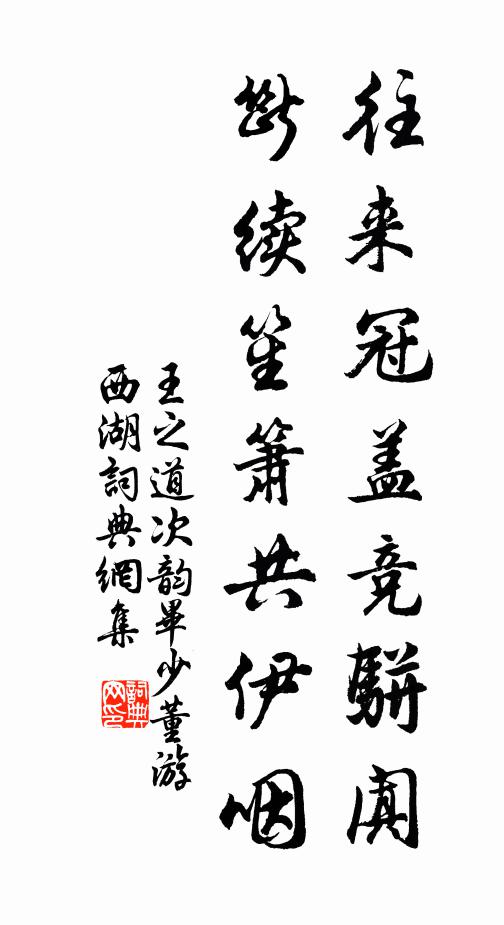 往来冠盖竞駢阗
断续笙箫共伊咽
王之道次韵畢少董游
西湖詞典網集
詞典网印